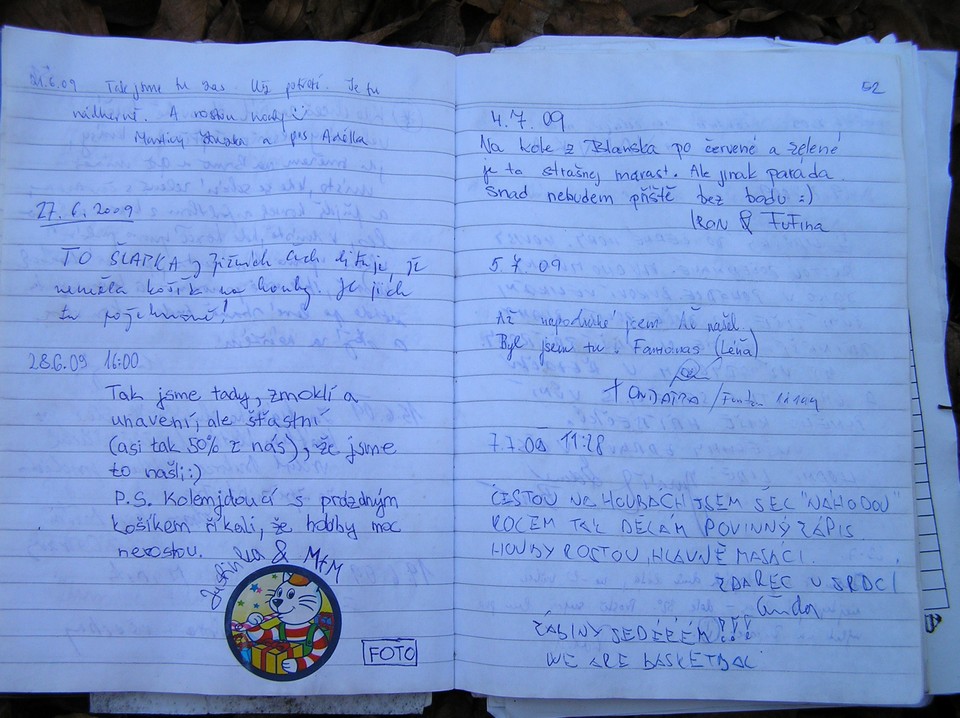 21.6.09 Tak jsme tu zas. Už potřetí. Je tu
nádherně. A rostou houby
Martiny a pes Adélka
27.6.2009
TO ŠLAPKA z jižních Čech lituje, že
neměla košík na houby. Je jich
tu požehnaně!
28.6.09 16:00
Tak jsme tady, zmoklí a
unavení, ale šťastní
(asi tak 50% z nás), že jsme
to našli:)
P.S. Kolemjdoucí s prázdným
košíkem říkali, že houby moc
nerostou.
& M+M
FOTO
52
4.7.09
Na kole z Blanska po červené a zelené
je to strašnej marast. Ale jinak paráda
snad nebudem příště bez bodu :)
IRON & FUFINA
5.7.09
Až napodruhé jsem tě našel.
Byl jsem tu i Fantomas (Léňa)
7.7.09 11:28
ČESTOU NA HOUBÁCH JSEM ŠEL "NÁHODOU"
KOLEM TAK DĚLÁM POVINNÝ ZÁPIS.
HOUBY ROSTOU, HLAVNĚ MASÁCI.
ZDAREC U SRDCÍ
ŽABINY SEDÉRÉM!!!
WE ARE BASKETBAL